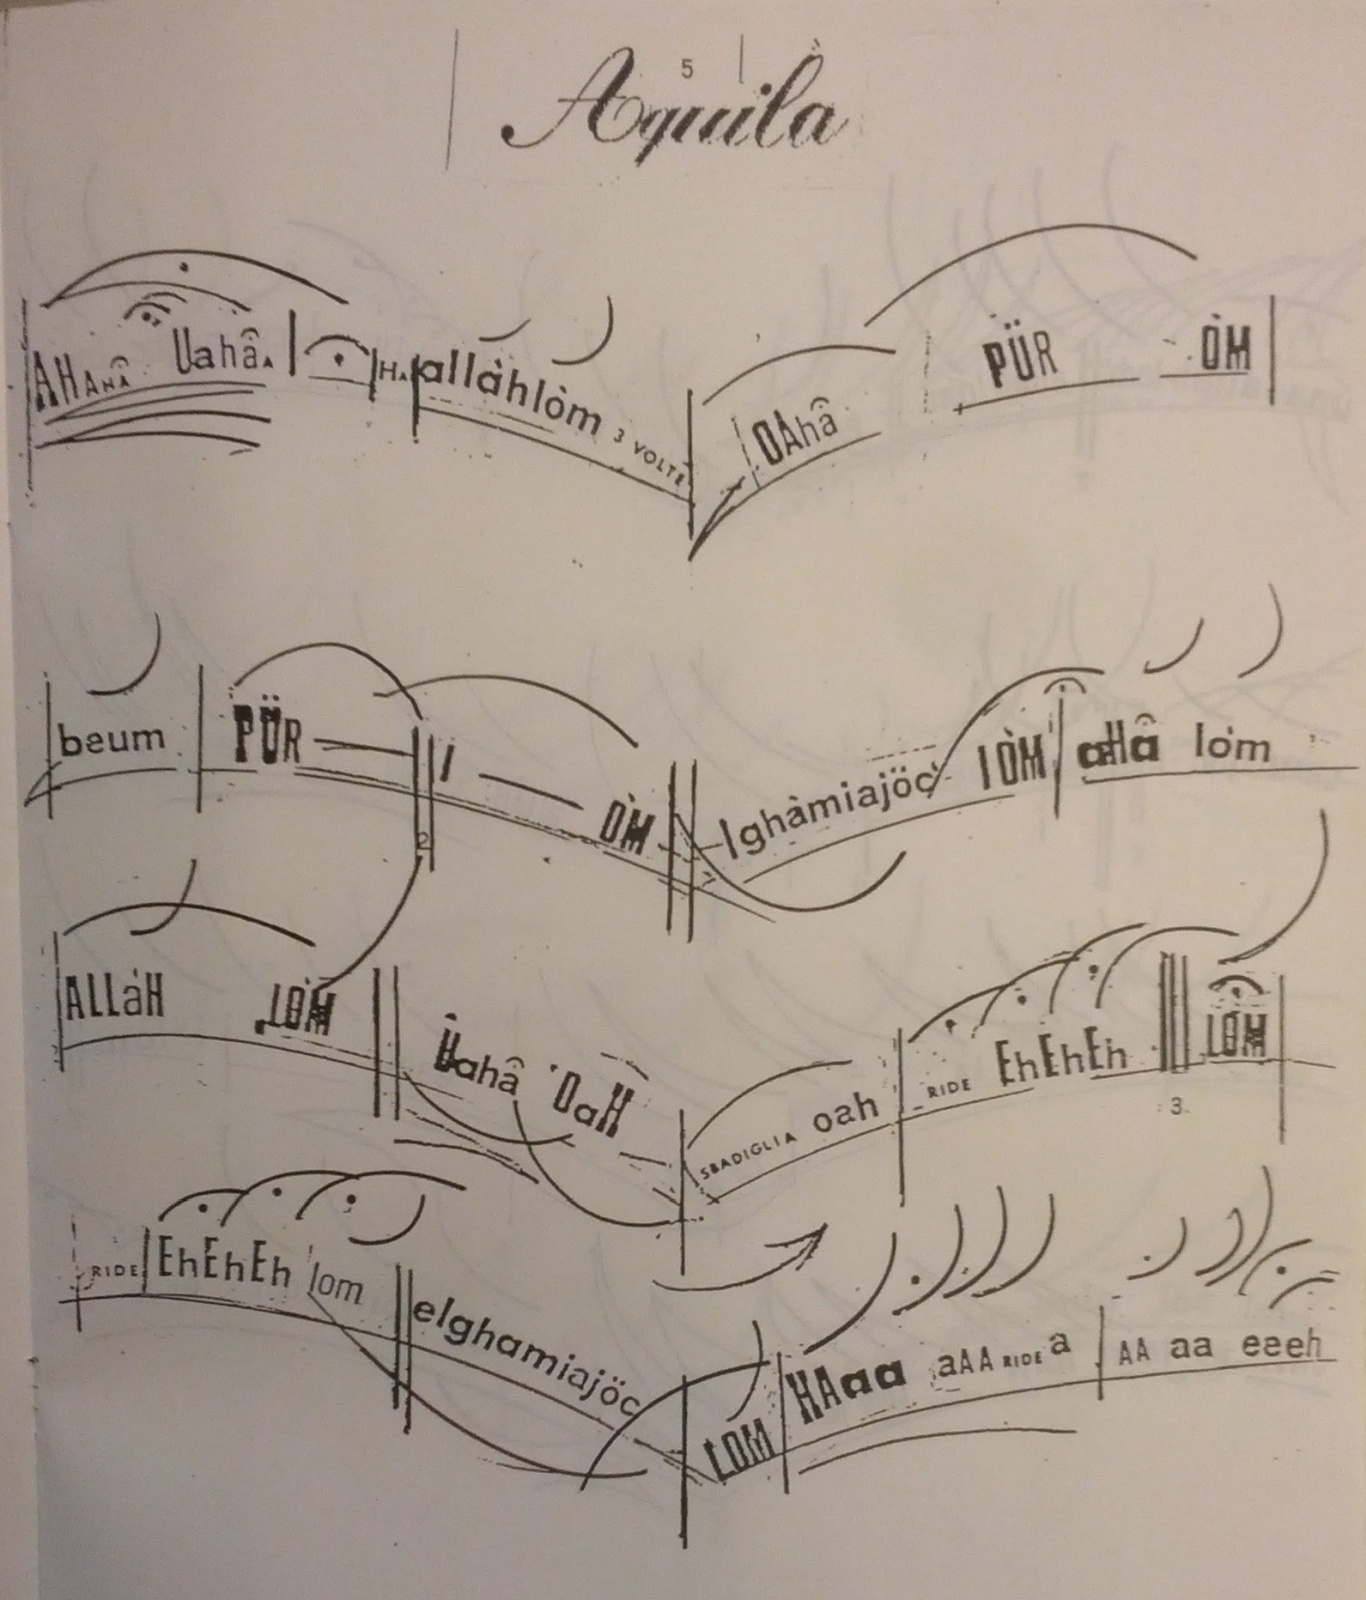 5
Aquila
AHAHÂ UahâA HA allàhlòm 3 VOLTE OAhâ PÜR ÒM
beum PÜR I ÒM Ighàmiajöc IÒM allâ lòm
2
ALLàH LÒM Ûahâ OaH SBADIGLIA oah RIDE EhEhEh LÒM
3
RIDE EhEhEh lom elghamiajöc LOM HAaa aAA RIDE a AA aa eeeh